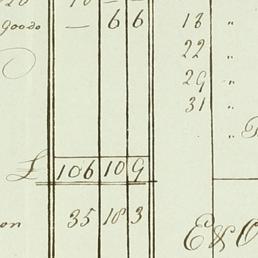 goods — 6 6
18 "
22 "
29 "
31 "
"
£ 106 10 9
35 18 3
E & O